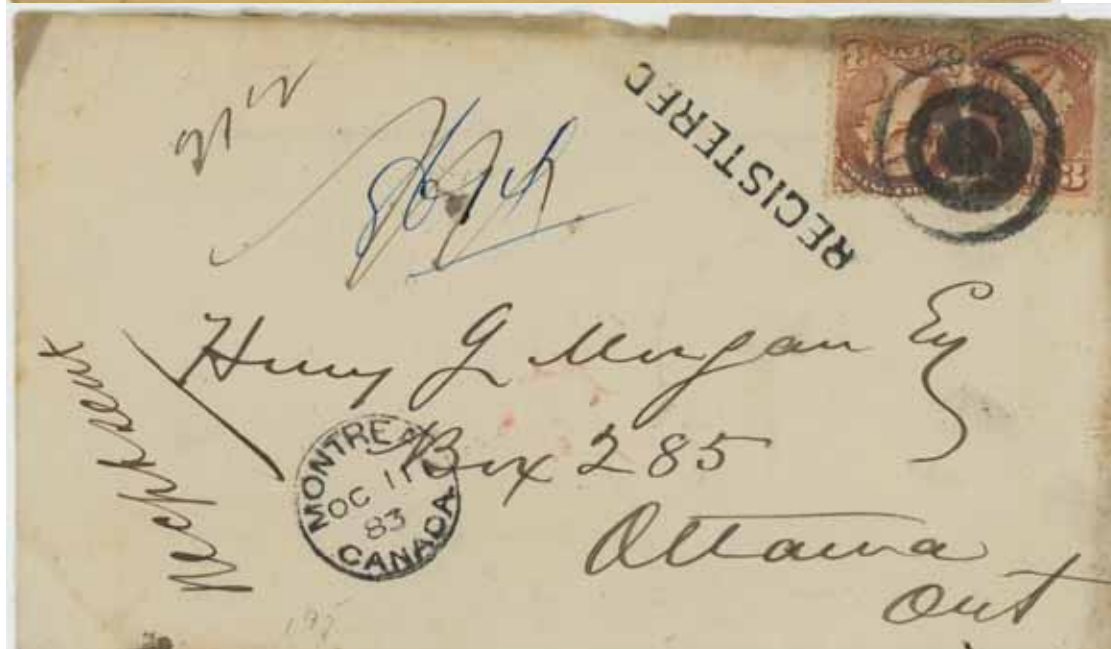 REGISTERED
3 3
3
Henry J Morgan Esq
Box 285
Ottawa
Ont
MONTREAL
OC 11
83
CANADA